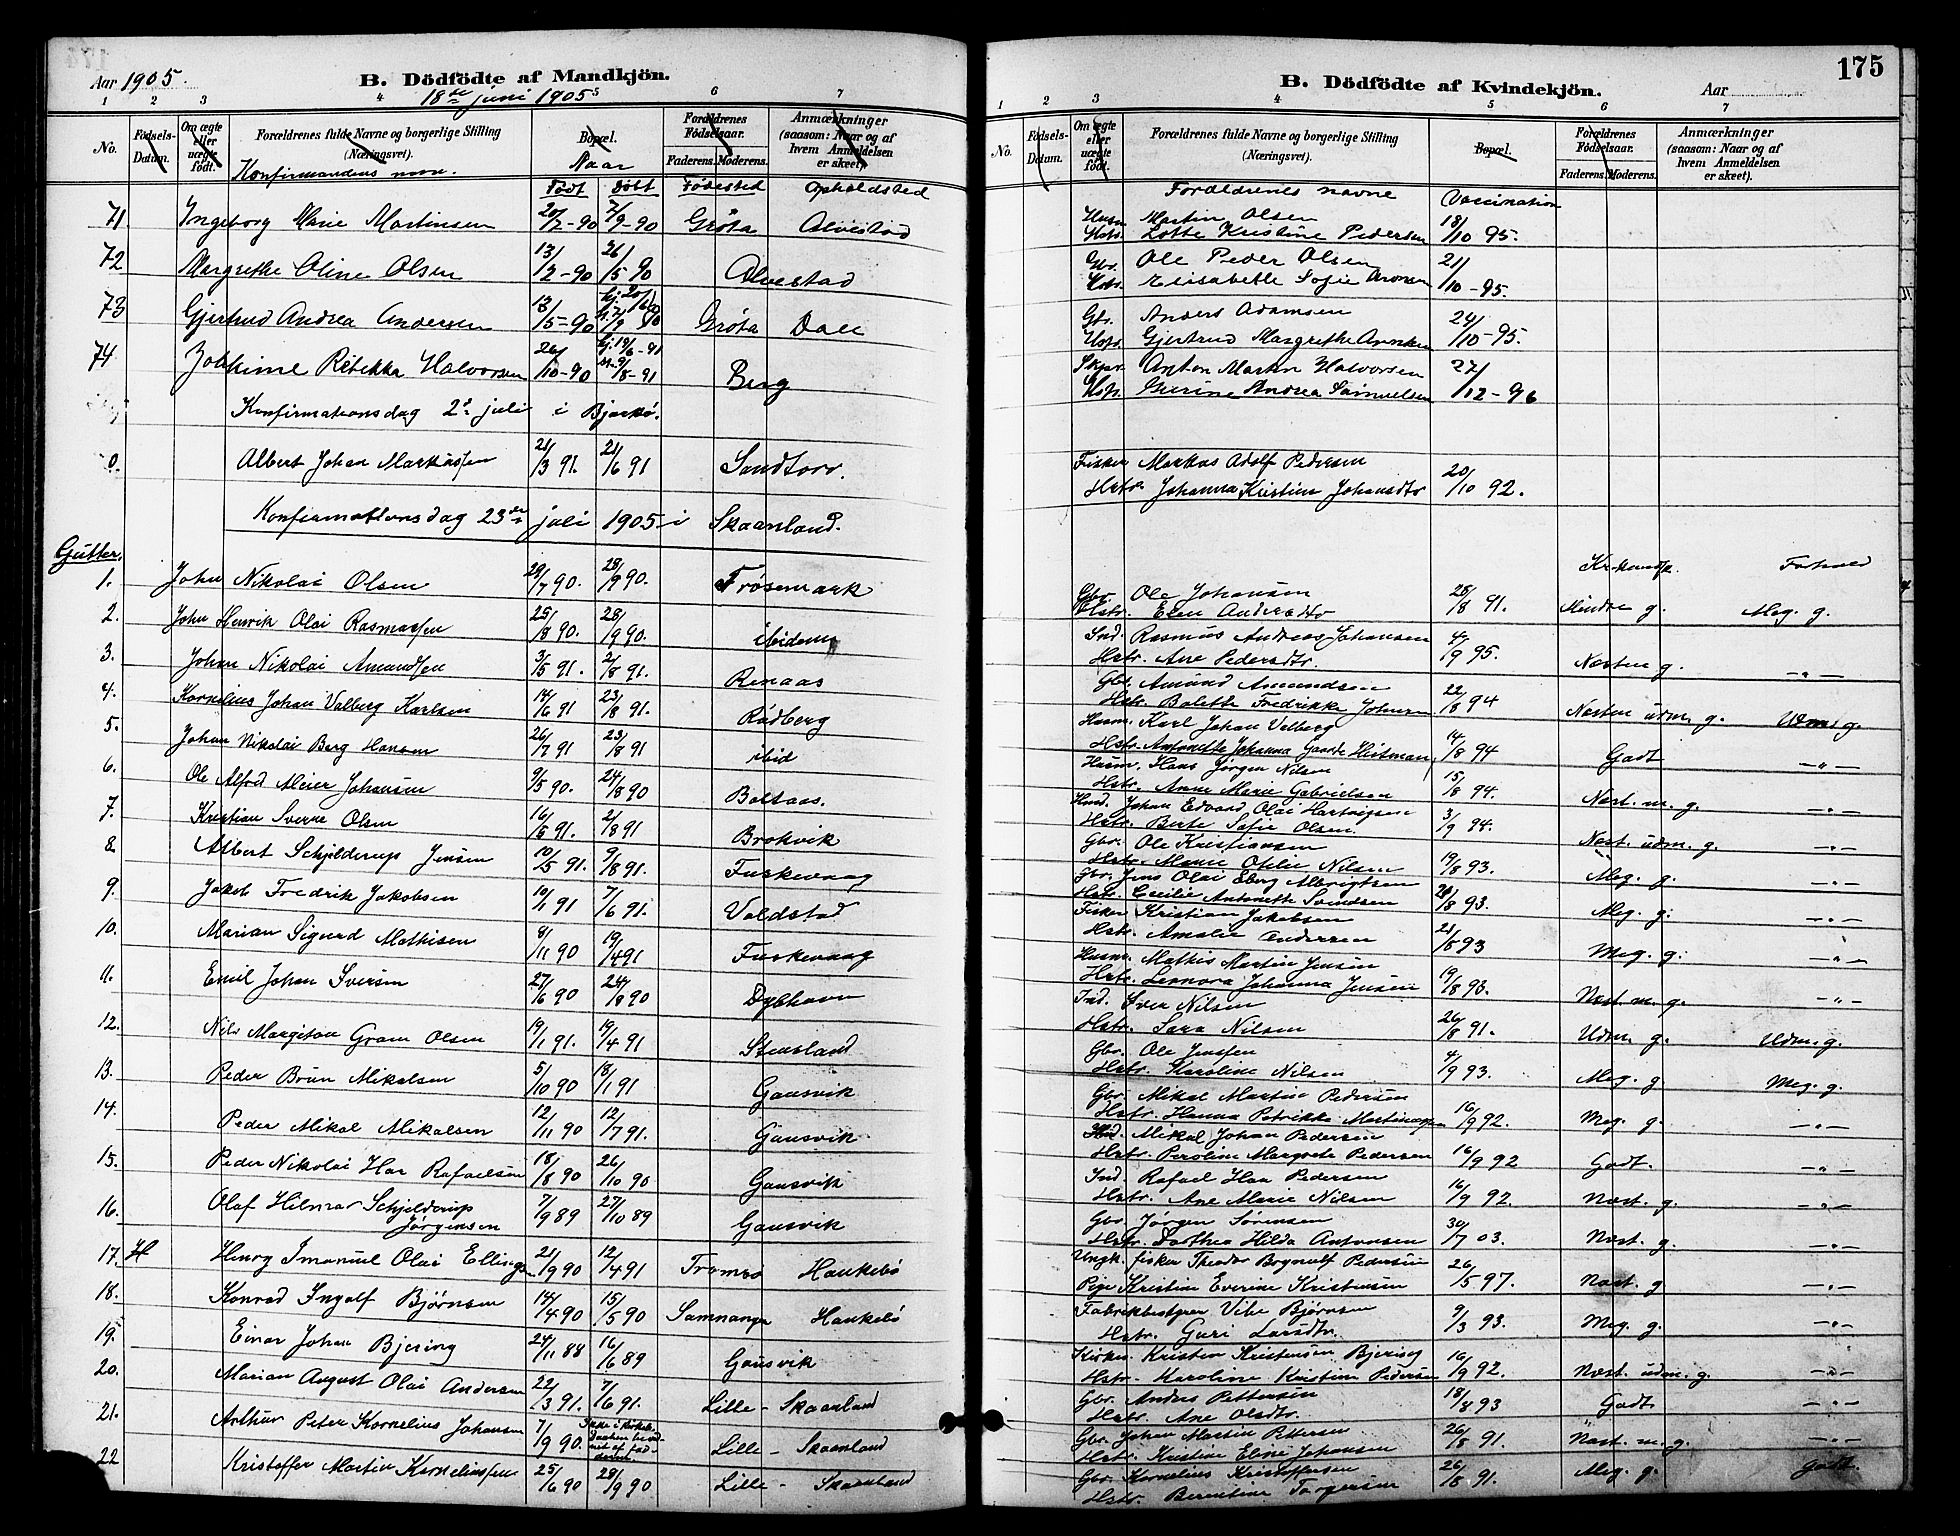 Aar 1905.
B. Dödfödte af Mandkjön.
18de juni 1905
1 2 3 4 5 6 7
No.
Födsels-Datum.
Om ægte eller uægte födt.
Forældrenes fulde Navne og borgerlige Stilling (Næringsvei).
Bopæl.
Forældrenes Födselsaar.
Faderens. Moderens.
Anmærkninger (saasom: Naar og af hvem Anmeldelsen er skeet).
Konfirmandens navn. Naar
Födt Döbt Födested Opholdsted
71 Ingeborg Marie Martinsen 20/7-90 7/9-90 Grøta Alvestad
72 Margrethe Oline Olsen 13/2-90 26/5 90 Alvestad
73 Gjertrud Andrea Andersen 13/5-90 Grøta Dale
74 Rebekka Halvorsen 26/10-90 Gj. 19/6-91 st. 9/8-91 Berg
Konfirmationsdag 2den juli i Bjarkö.
0. Albert Johan Markussen 21/3 91. 21/6 91 Sandtorv.
Konfirmationsdag 23de juli 1905 i Skaanland.
Gutter.
1. John Nikolai Olsen 29/7 90. 28/9 90. Trøsemark
2. John Henrik Olai Rasmussen 25/8 90. 28/9 90. ibidem
3. Johan Nikolai Amundsen 3/5 91. 2/8 91. Renaas
4. Kornelius Johan Valberg Karlsen 14/6 91 23/8 91. Rödberg
5. Johan Nikolai Berg Hansen 26/7 91 23/8 91 ibid
6. Ole Alfred Meier Johansen 9/5 90. 24/8 90 Boltaas.
7. Kristian Sverre Olsen 16/5 91. 2/8 91 Brokvik
8. Albert Schjelderup Jensen 10/5 91. 9/8 91. Fuskevaag
9. Jakob Fredrik Jakobsen 10/1 91 7/6 91. Voldstad
10. Marian Sigurd Mathisen 8/11 90 19/4 91 Fuskevaag
11. Emil Johan Iversen 27/6 90 24/8 90 Dybhavn
12. Nils Margiton Gram Olsen 19/1 91. 19/4 91 Stensland
13. Peder Brun Mikalsen 5/10 90 18/1 91 Gausvik
14. Peder Mikal Mikalsen 12/11 90 12/7 91. Gausvik
15. Peder Nikolai Har Rafaelsen 18/8 90 26/10 90 Gausvik
16. Olaf Hilmar Schjelderup Jørgensen 7/9 89 27/10 89 Gausvik
17. H Henry Imanuel Olai Ellingsen 21/9 90 12/4 91 Tromsø Haukebø
18. Konrad Ingolf Bjørnsen 14/4 90 15/5 90 Samnanger Haukebø
19. Einar Johan Bjering 24/11 88 16/6 89 Gausvik
20. Marian August Olai Andersen 22/3 91. 7/6 91. Lille-Skaanland
21. Arthur Peter Kornelius Johansen 7/9 90. Lille-Skaanland
22 Kristoffer Martin Korneliussen 25/6 90 28/9 90 Lille-Skaanland
175
B. Dödfödte af Kvindekjön.
Aar
1 2 3 4 5 6 7
No.
Födsels-Datum.
Om ægte eller uægte födt.
Forældrenes fulde Navne og borgerlige Stilling (Næringsvei).
Bopæl.
Forældrenes Födselsaar.
Faderens. Moderens.
Anmærkninger (saasom: Naar og af hvem Anmeldelsen er skeet).
Forældrenes navne Vaccination
Husm. Martin Olsen 18/10 95.
Hstr. Lotte Kristine Pedersen
Gbr. Ole Peder Olsen 21/10-95.
Hstr. Elisabeth Sofie
Gbr. Anders Adamsen 24/10-95.
Hstr. Gjertrud Margrethe
Skpr. Anton Martin Halvorsen 27/12-96
Hstr. Andrea Samuelsen
Fisker Markus Adolf Pedersen 20/10 92.
Hstr. Johanna Kristine Johansdtr
Kr.kundsk. Forhold
Gbr. Ole Johansen 28/8 91. Mindre g. Meg. g.
Hstr. Elen Andersdtr
Ind. Rasmus Andreas Johansen 4/9 95. Næsten g. -"-
Hstr. Ane Pedersdtr.
Gbr. Amund Amundsen 22/8 94 Næsten udm. g. Udm. g.
Hstr. Bolette Fredrikke Johnsen
Husm. Karl Johan Valberg 14/8 94 Godt -"-
Hstr. Antonette Johanna
Husm. Hans Jørgen Nilsen 15/8 94. Næst. m. g. -"-
Hstr. Anne Marie Gabrielsen
Johan Edvard Olai Hartvigsen 3/9 94. Næst. udm. g. -"-
Hstr. Berte Sofie Olsen.
Gbr. Ole Kristiansen 19/8 93. Meg. g. -"-
Hstr. Marie Otilie Nilsen
Gbr. Jens Olai Eberg Albrigtsen 28/8 93. Meg. g. -"-
Hstr. Cecilie Antonette Svendsen
Fisker Kristian Jakobsen 21/8 93 Meg. g. -"-
Hstr. Amalie Andersen
Husm. Mathis Martin Jensen 19/8 93. Næst m. g. -"-
Hstr. Leonora Johanna Jensen
Ind. Iver Nilsen 26/8 91. Udm. g. Udm. g.
Hstr. Sara Nilsen
Gbr. Ole Jenssen 4/9 93. Meg. g Meg. g.
Hstr. Karoline Nilsen
Gbr. Mikal Martin Pedersen 16/9 92. Meg. g. -"-
Hstr. Hanna Petrikke
Mikal Johan Pedersen 16/9 92 Godt. -"-
Hstr. Peroline Margrete Pedersen
Ind. Rafael Haa Pedersen 16/9 92. Næst. g. -"-
Hstr. Ane Marie Nilsen
Gbr. Jørgen Sørensen 30/7 03. Næst. g. -"-
Hstr. Dorthea Hilda Antonsen
Ungk. fisker Theodor Pedersen 26/5 97. Næst. g -"-
Pige Kristine Everine Kristensen
Fabrikbestyrer Vibe Bjørnsen 9/3 93. Meg. g. -"-
Hstr. Guri Larsdtr.
Kirkes. Kristen Kristensen Bjering 16/9 92. Næst. udm. g. -"-
Hstr. Karoline Kristine Pedersen
Gbr. Anders Pettersen 18/8 93 Godt -"-
Hstr. Ane Olsdtr.
Gbr. Johan Martin Pettersen 26/8 91. Næst. m. g. -"-
Hstr. Kristine Eline Johansen
Gbr. Kornelius Kristoffersen 26/8 91. Meg. g. Godt.
Hstr. Berentine Torgersen